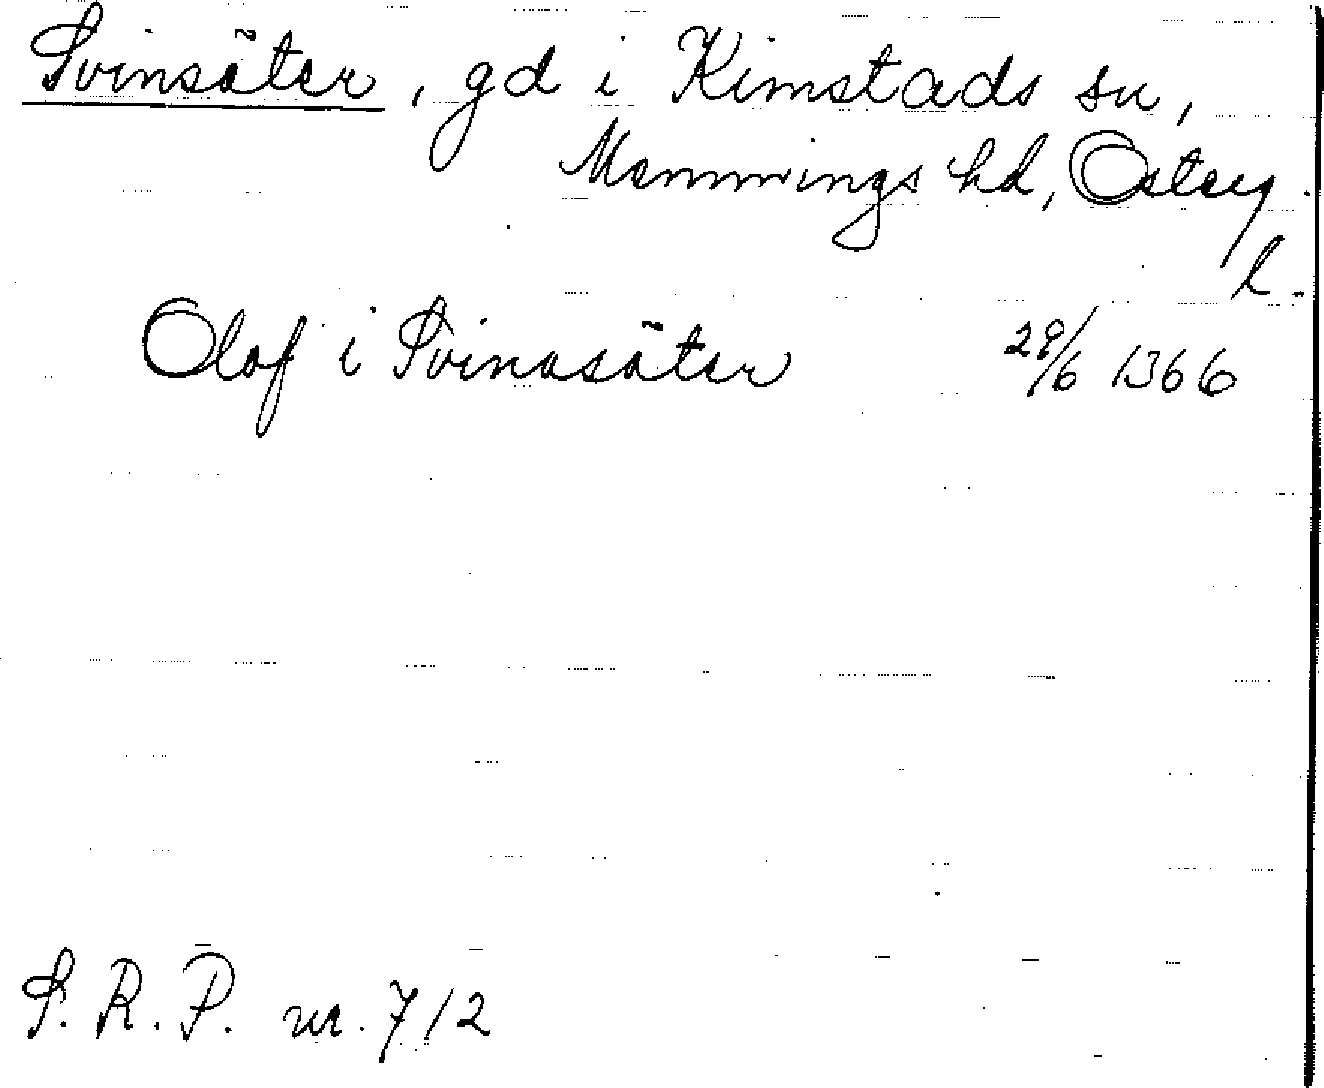 Svinsäter, gd i Kimstads sn,
Memmings hd, Österg.
l.
Olof i Svinasäter 29/6 1366
S. R. P. nr. 712